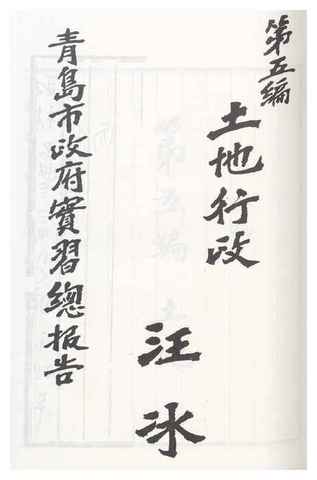 第五編
土地行政
汪冰
青島市政府實習總报告